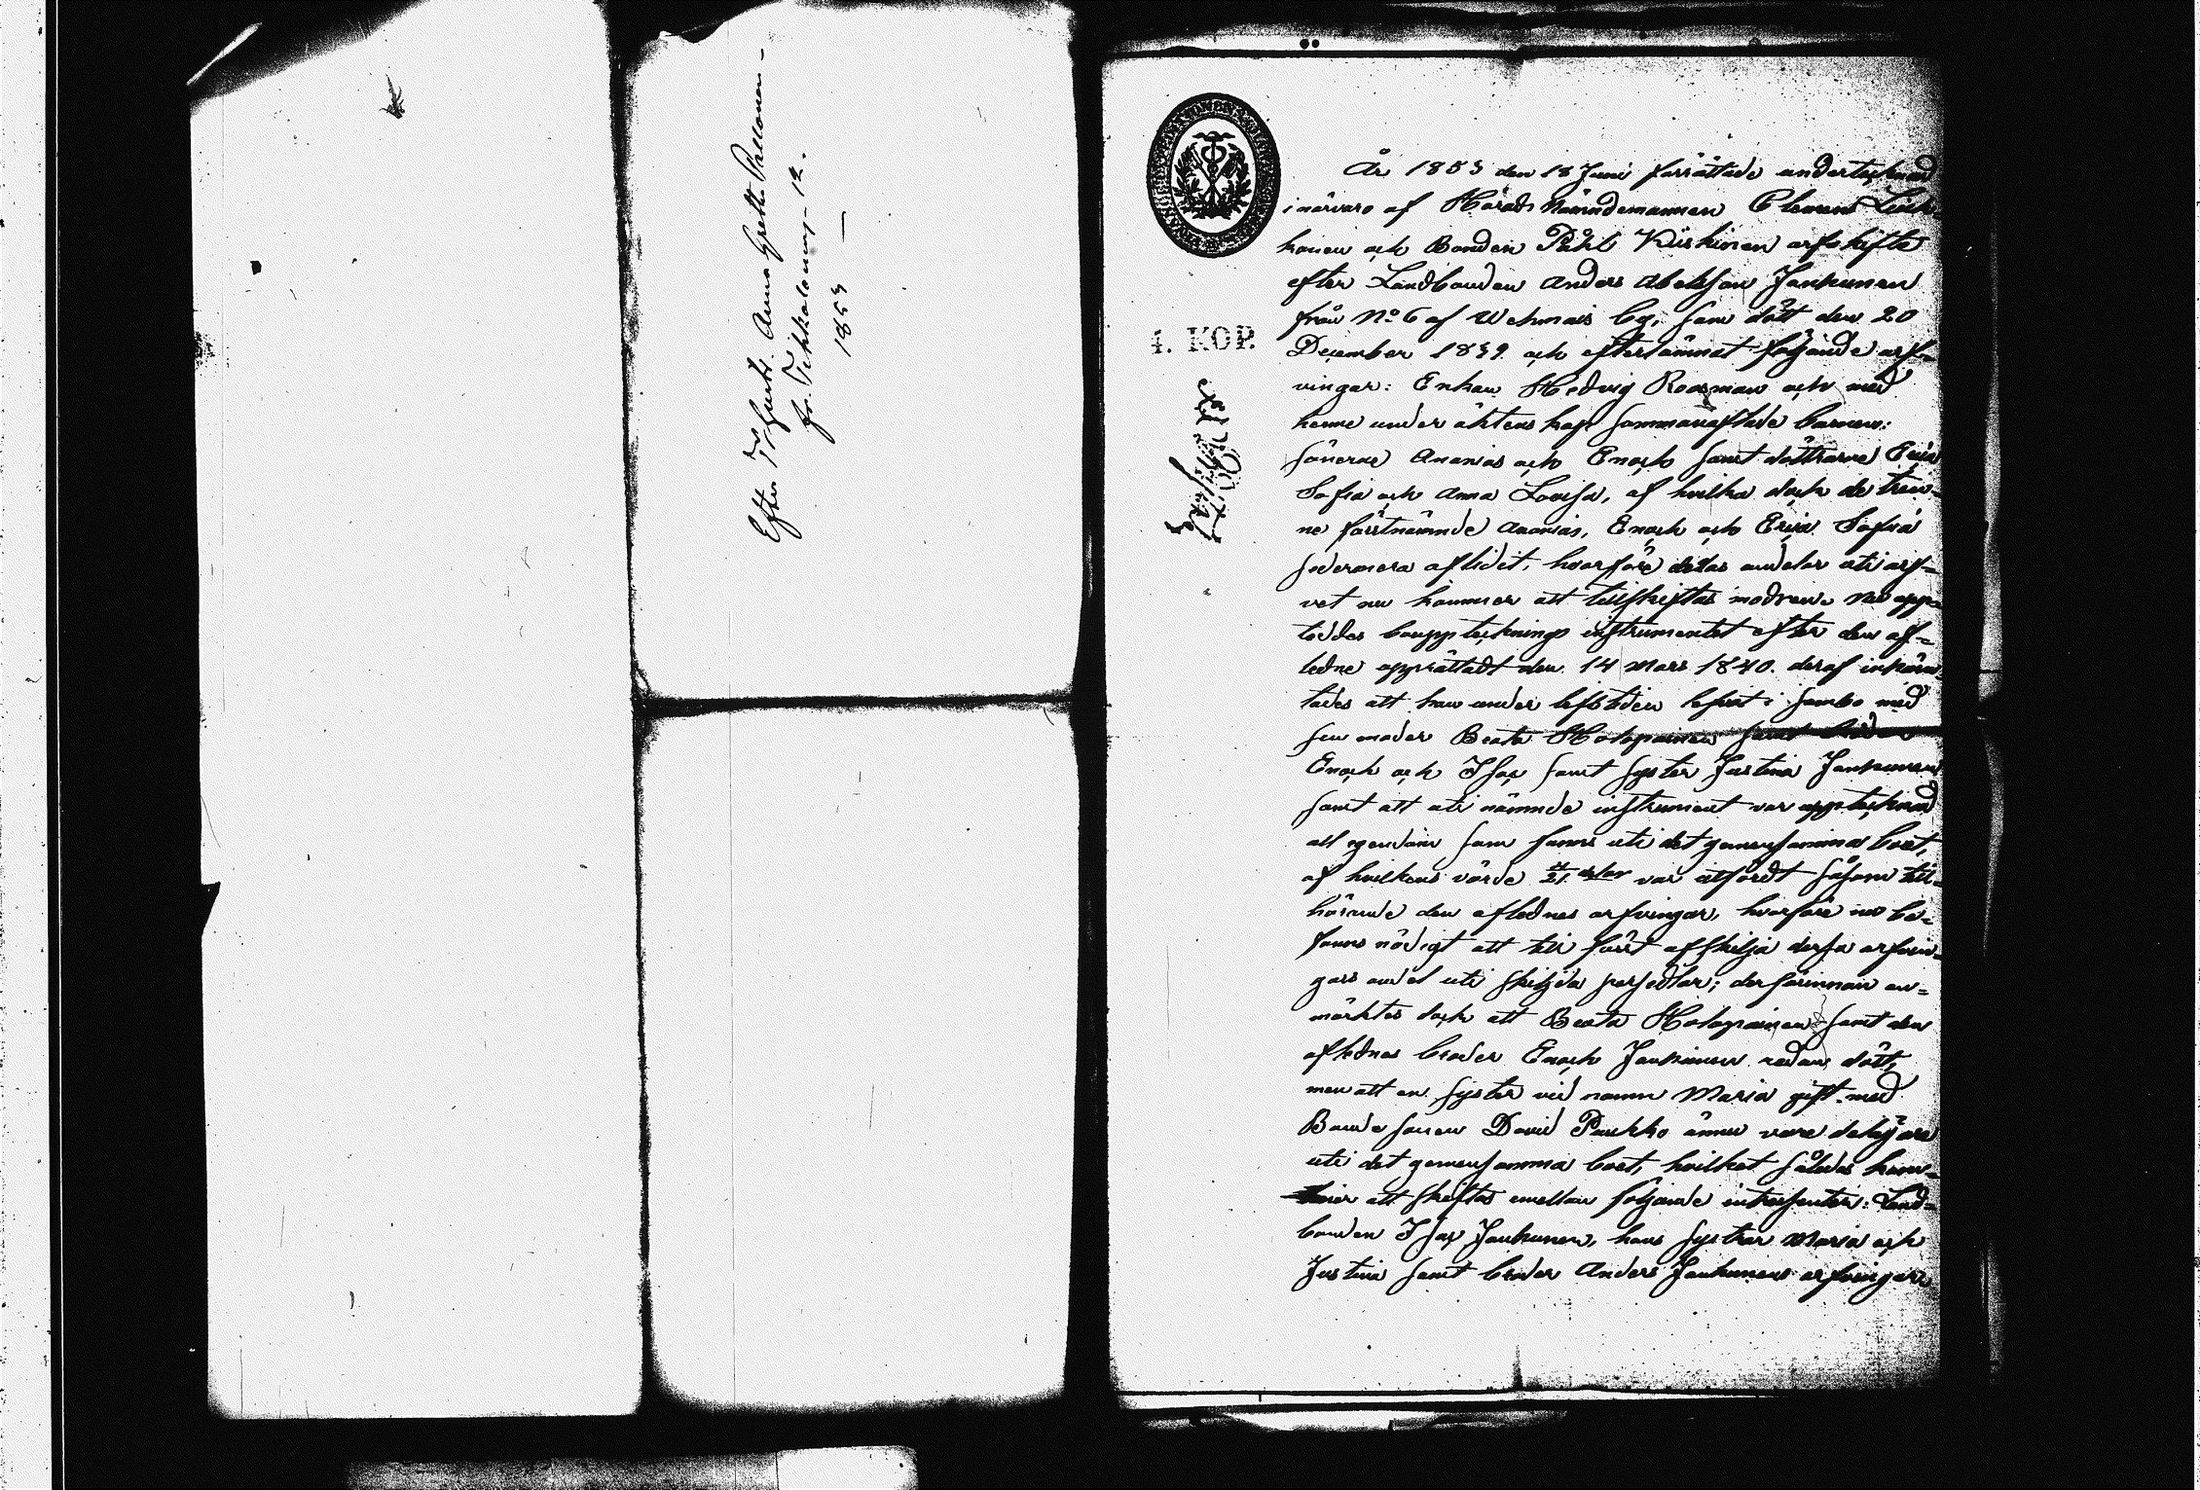 Efter T. Hust. Anna Gretta Pellonen –
fr. Tehkolamp. 12.
1853 —
4. KOP.
År 1853 den 18 Juni förrättade undertecknad
i närvaro af Härads Nämndemannen Clemens
och Bonden Påhl Kiiskinen arfskifte
efter Landbonden Anders Abelsson Jankunen
från No 6 af Wehmais by, som dött den 20
December 1839 och efterlämnat följande arf-
vingar: Enkan Hedvig Roosman och med
henne under äktenskap sammanaflade barnen:
sönerne Ananias och Enoch samt döttrarne Eva
Sofia och Anna Lovisa, af hvilka dock de tven-
ne förstnämnde Ananias, Enoch och Eva Sofia
sedermera aflidit, hvarföre detas andelar uti arf-
vet nu kommer att tillskiftas modren. Nu upp-
teddes bouppteknings instrumentet efter den af-
ledne upprättadt den 14 Mars 1840. deraf inhäm-
tades att han under lifstiden lefvat i sambo med
sin moder Beata Holopainen samt bröder
Enoch och Isac samt syster Justina Jankunen
samt att uti nämnde instrument var upptecknad
all egendom som fanns uti det gemensamma boet,
af hvilkens värde 4/21 delar var utfördt såsom till-
hörande den aflednes arfvingar, hvarföre nu be-
fanns nödigt att till först afskilja dessa arfvin-
gars andel uti skiljda persedlar; der förinnan an-
märktes dock att Beata Holopainen samt den
aflednes broder Enoch Jankunen redan dött,
men att en syster vid namn Maria gift med
Bonde sonen David Paukko ännu vore delägare
uti det gemensamma boet, hvilket således kom-
mer att skiftas emellan följande intressenter: Land-
bonden Isac Jankunen, hans systrar Maria och
Justina samt broder Anders Jankunens arfvingar